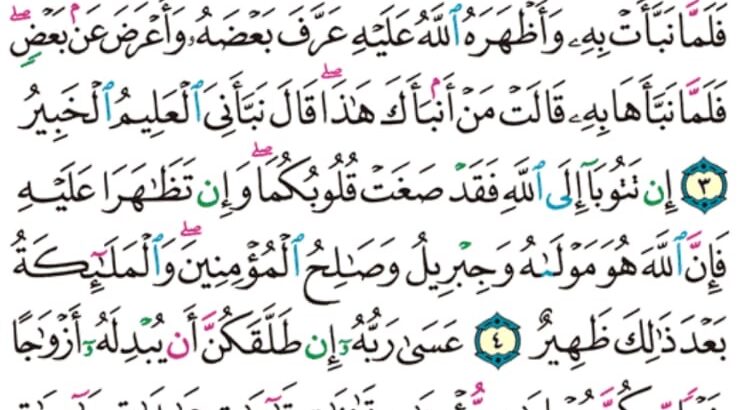 فَلَمَّا نَبَّأَتْ بِهِۦ وَأَظْهَرَهُ ٱللَّهُ عَلَيْهِ عَرَّفَ بَعْضَهُۥ وَأَعْرَضَ عَنۢ بَعْضٍۖ
فَلَمَّا نَبَّأَهَا بِهِۦ قَالَتْ مَنْ أَنۢبَأَكَ هَٰذَاۖ قَالَ نَبَّأَنِىَ ٱلْعَلِيمُ ٱلْخَبِيرُ
٣ إِن تَتُوبَآ إِلَى ٱللَّهِ فَقَدْ صَغَتْ قُلُوبُكُمَاۖ وَإِن تَظَٰهَرَا عَلَيْهِ
فَإِنَّ ٱللَّهَ هُوَ مَوْلَىٰهُ وَجِبْرِيلُ وَصَٰلِحُ ٱلْمُؤْمِنِينَۖ وَٱلْمَلَٰٓئِكَةُ
بَعْدَ ذَٰلِكَ ظَهِيرٌ ٤ عَسَىٰ رَبُّهُۥٓ إِن طَلَّقَكُنَّ أَن يُبْدِلَهُۥٓ أَزْوَٰجًا